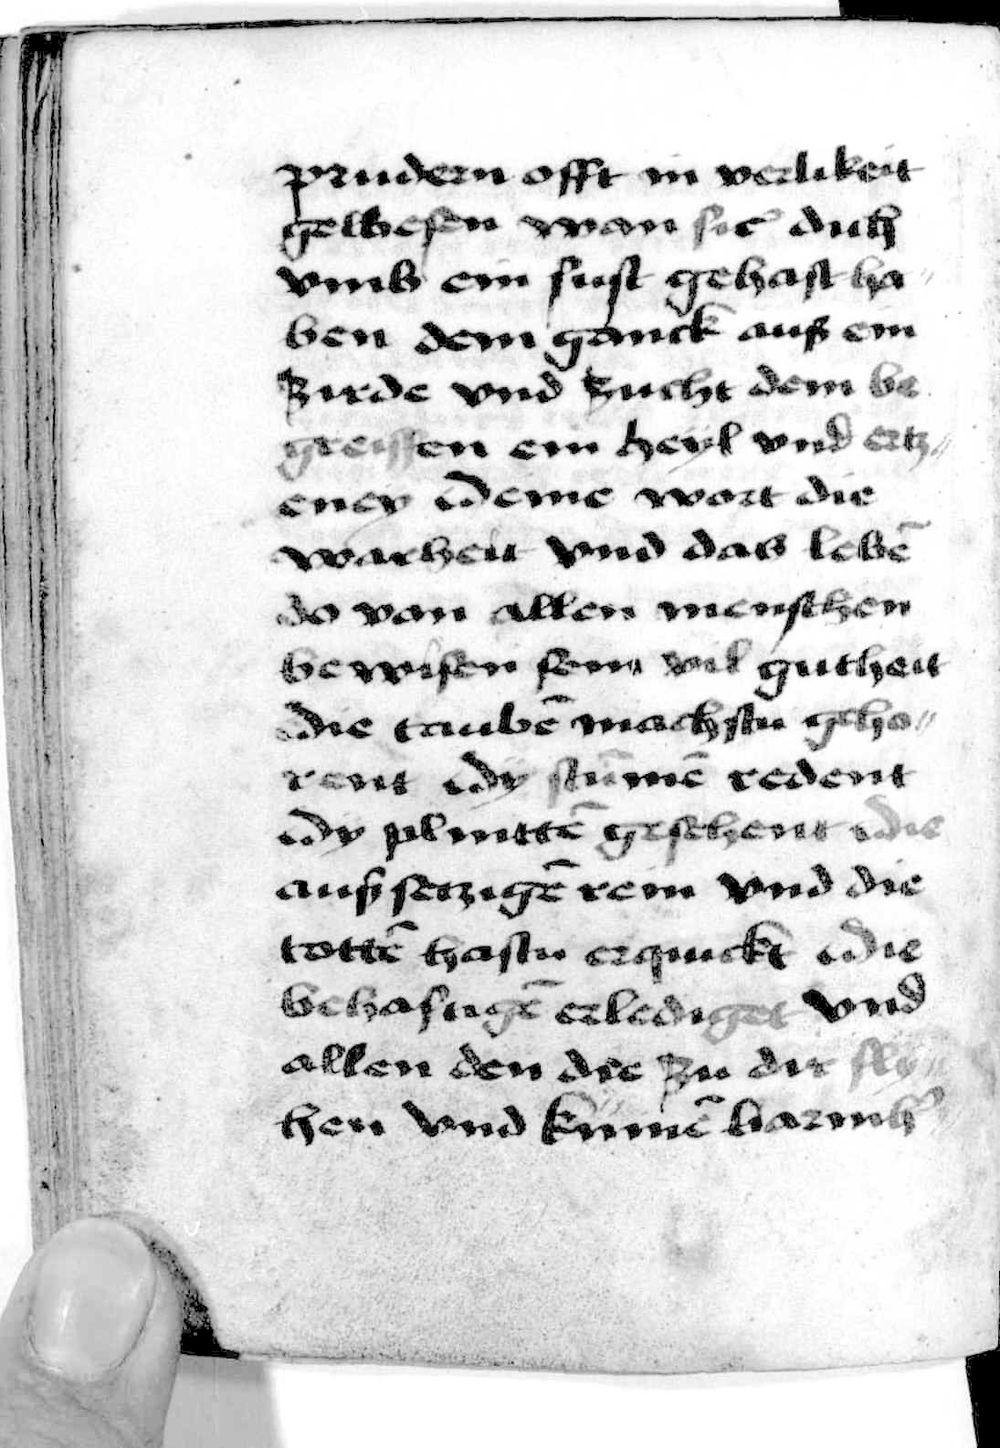 prudern offt in verlikeit
gewesen wan sie dich
vmb ein sust gehast ha⸗
ben dem ganck auß ein
zirde vnd zucht dem be
greissen ein heyl vnd ertz⸗
eney Deine wort die
warheit vnd das lebē
do von allen menschen
bewisen sein vil gutheit
Die taubē machstu geho⸗
rent Dy stūmē redent
Dy plinttē gesehent Die
außsetzigē rein vnd die
tottē hastu erquickt Die
behaftigē erlediget vnd
allen den die zu dir fly⸗
hen vnd kumē barmh⸗